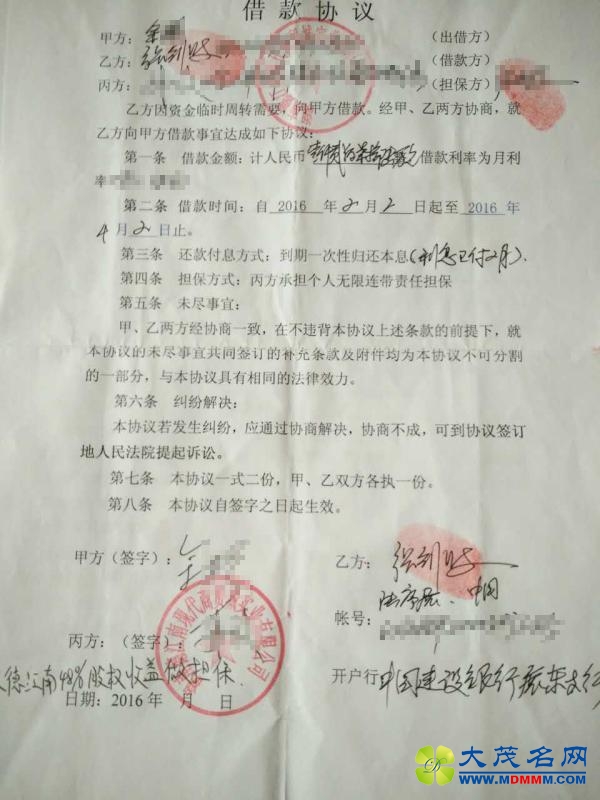 借款协议
甲方：（出借方）
乙方：（借款方）
丙方：（担保方）
乙方因资金临时周转需要，向甲方借款。经甲、乙两方协商，就
乙方向甲方借款事宜达成如下协议：
第一条 借款金额：计人民币 借款利率为月利
率
第二条 借款时间：自 2016 年2月2日起至 2016 年
4月2日止。
第三条 还款付息方式：到期一次性归还本息（利息已付2月）.
第四条 担保方式：丙方承担个人无限连带责任担保
第五条 未尽事宜：
甲、乙两方经协商一致，在不违背本协议上述条款的前提下，就
本协议的未尽事宜共同签订的补充条款及附件均为本协议不可分割
的一部分，与本协议具有相同的法律效力。
第六条 纠纷解决：
本协议若发生纠纷，应通过协商解决，协商不成，可到协议签订
地人民法院提起诉讼。
第七条 本协议一式二份，甲、乙双方各执一份。
第八条 本协议自签字之日起生效。
甲方（签字）：
乙方：
帐号：
丙方：（签字）：
德江南49%股权收益做担保.
开户行 中国建设银行振东支行
日期：2016年 月 日
大茂名网
www.MDMMM.com